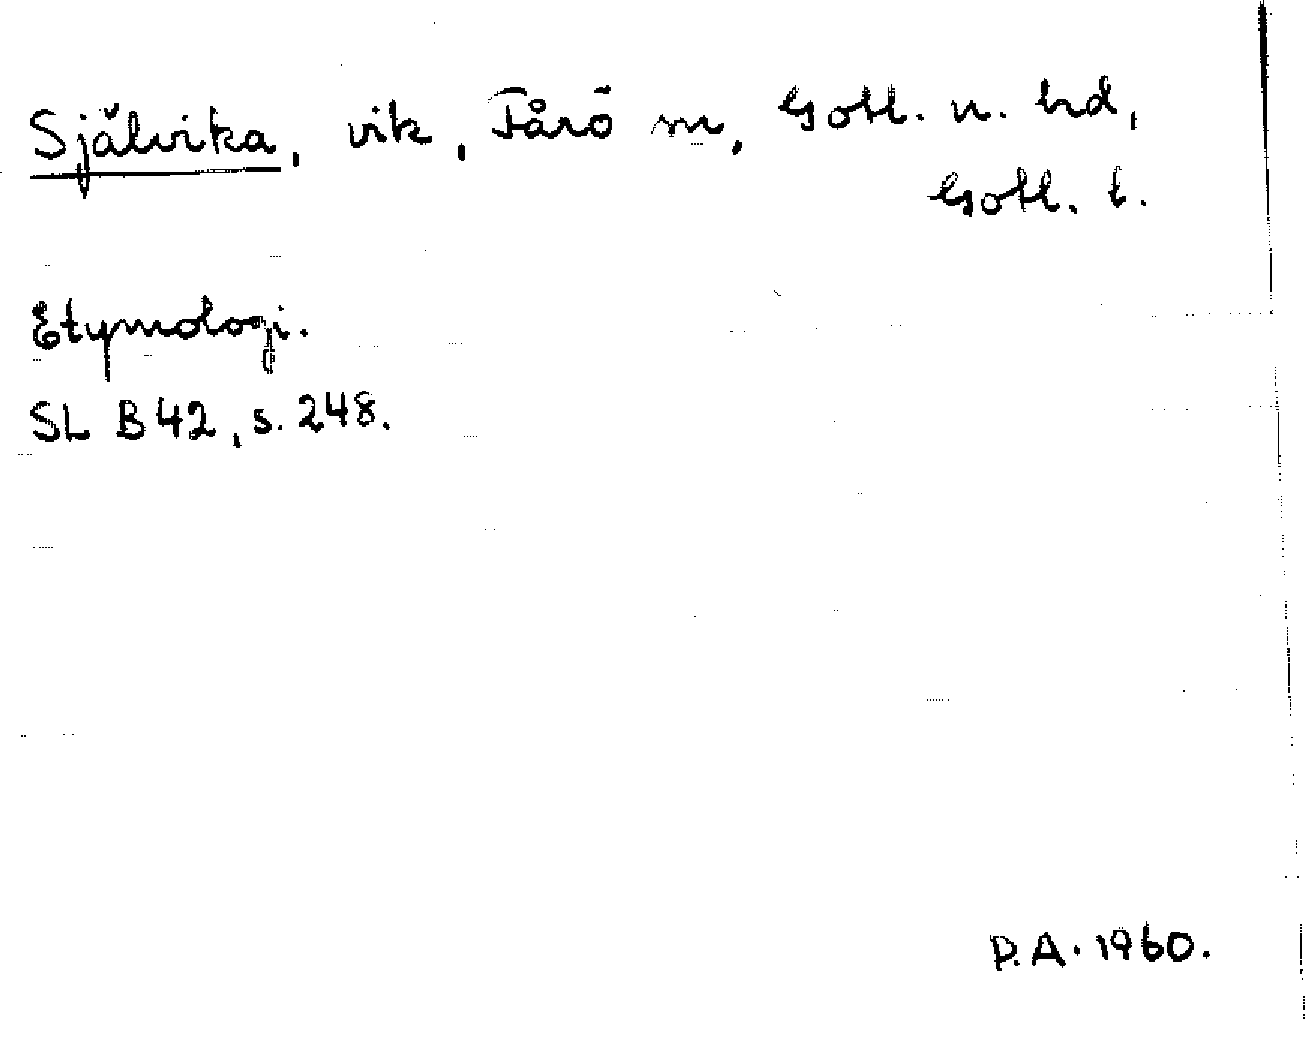 Självika, vik, Fårö sn, Gotl. n. hd,
Gotl. l.
Etymologi.
SL B 42, s. 248.
P.A. 1960.